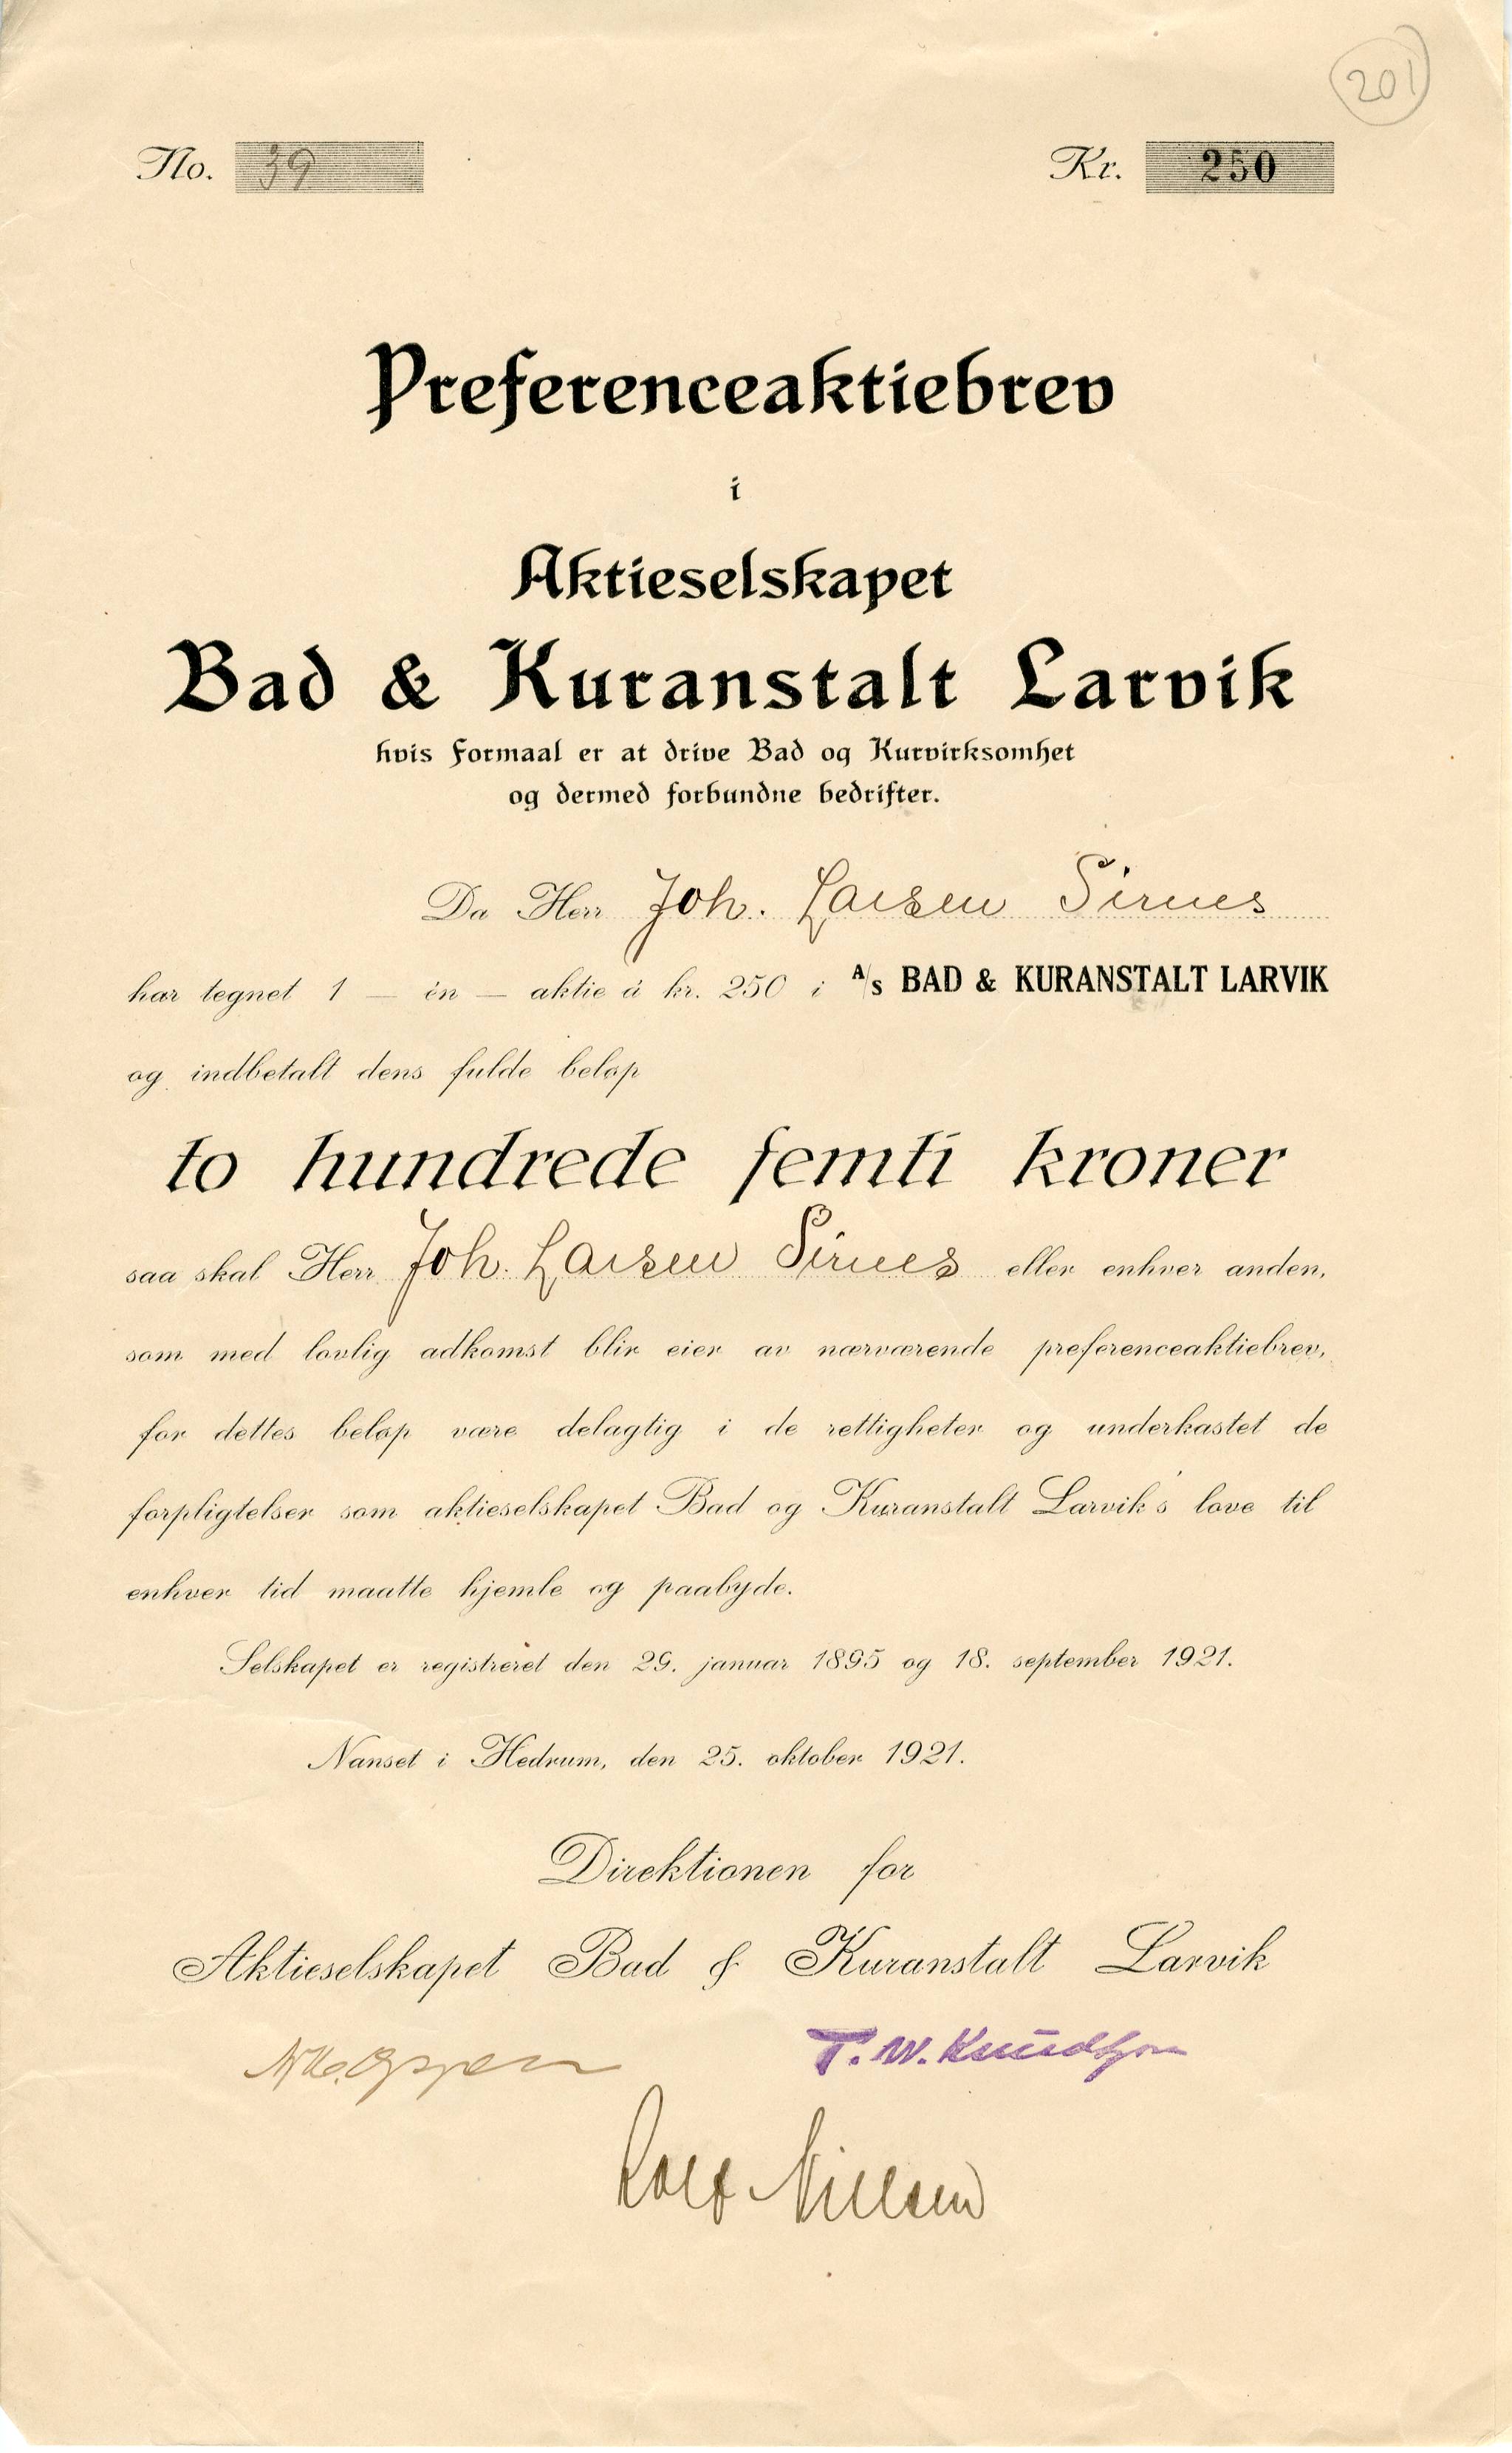 201
No. 39
Kr. 250
Preferenceaktiebrev
i
Aktieselskapet
Bad & Kuranstalt Larvik
hvis Formaal er at drive Bad og Kurvirksomhet
og dermed forbundne bedrifter.
Da Herr Joh. Larsen Sirnes
har tegnet 1 — èn — aktie à kr. 250 i A/s BAD & KURANSTALT LARVIK
og indbetalt dens fulde beløp
to hundrede femti kroner
saa skal Herr Joh. Larsen Sirnes eller enhver anden,
som med lovlig adkomst blir eier av nærværende preferenceaktiebrev,
for dettes beløp være delagtig i de rettigheter og underkastet de
forpligtelser som aktieselskapet Bad og Kuranstalt Larvik's love til
enhver tid maatte hjemle og paabyde.
Selskapet er registreret den 29. januar 1895 og 18. september 1921.
Nanset i Hedrum, den 25. oktober 1921.
Direktionen for
Aktieselskapet Bad & Kuranstalt Larvik
T. W. Knudtzon
Rolf Nielsen